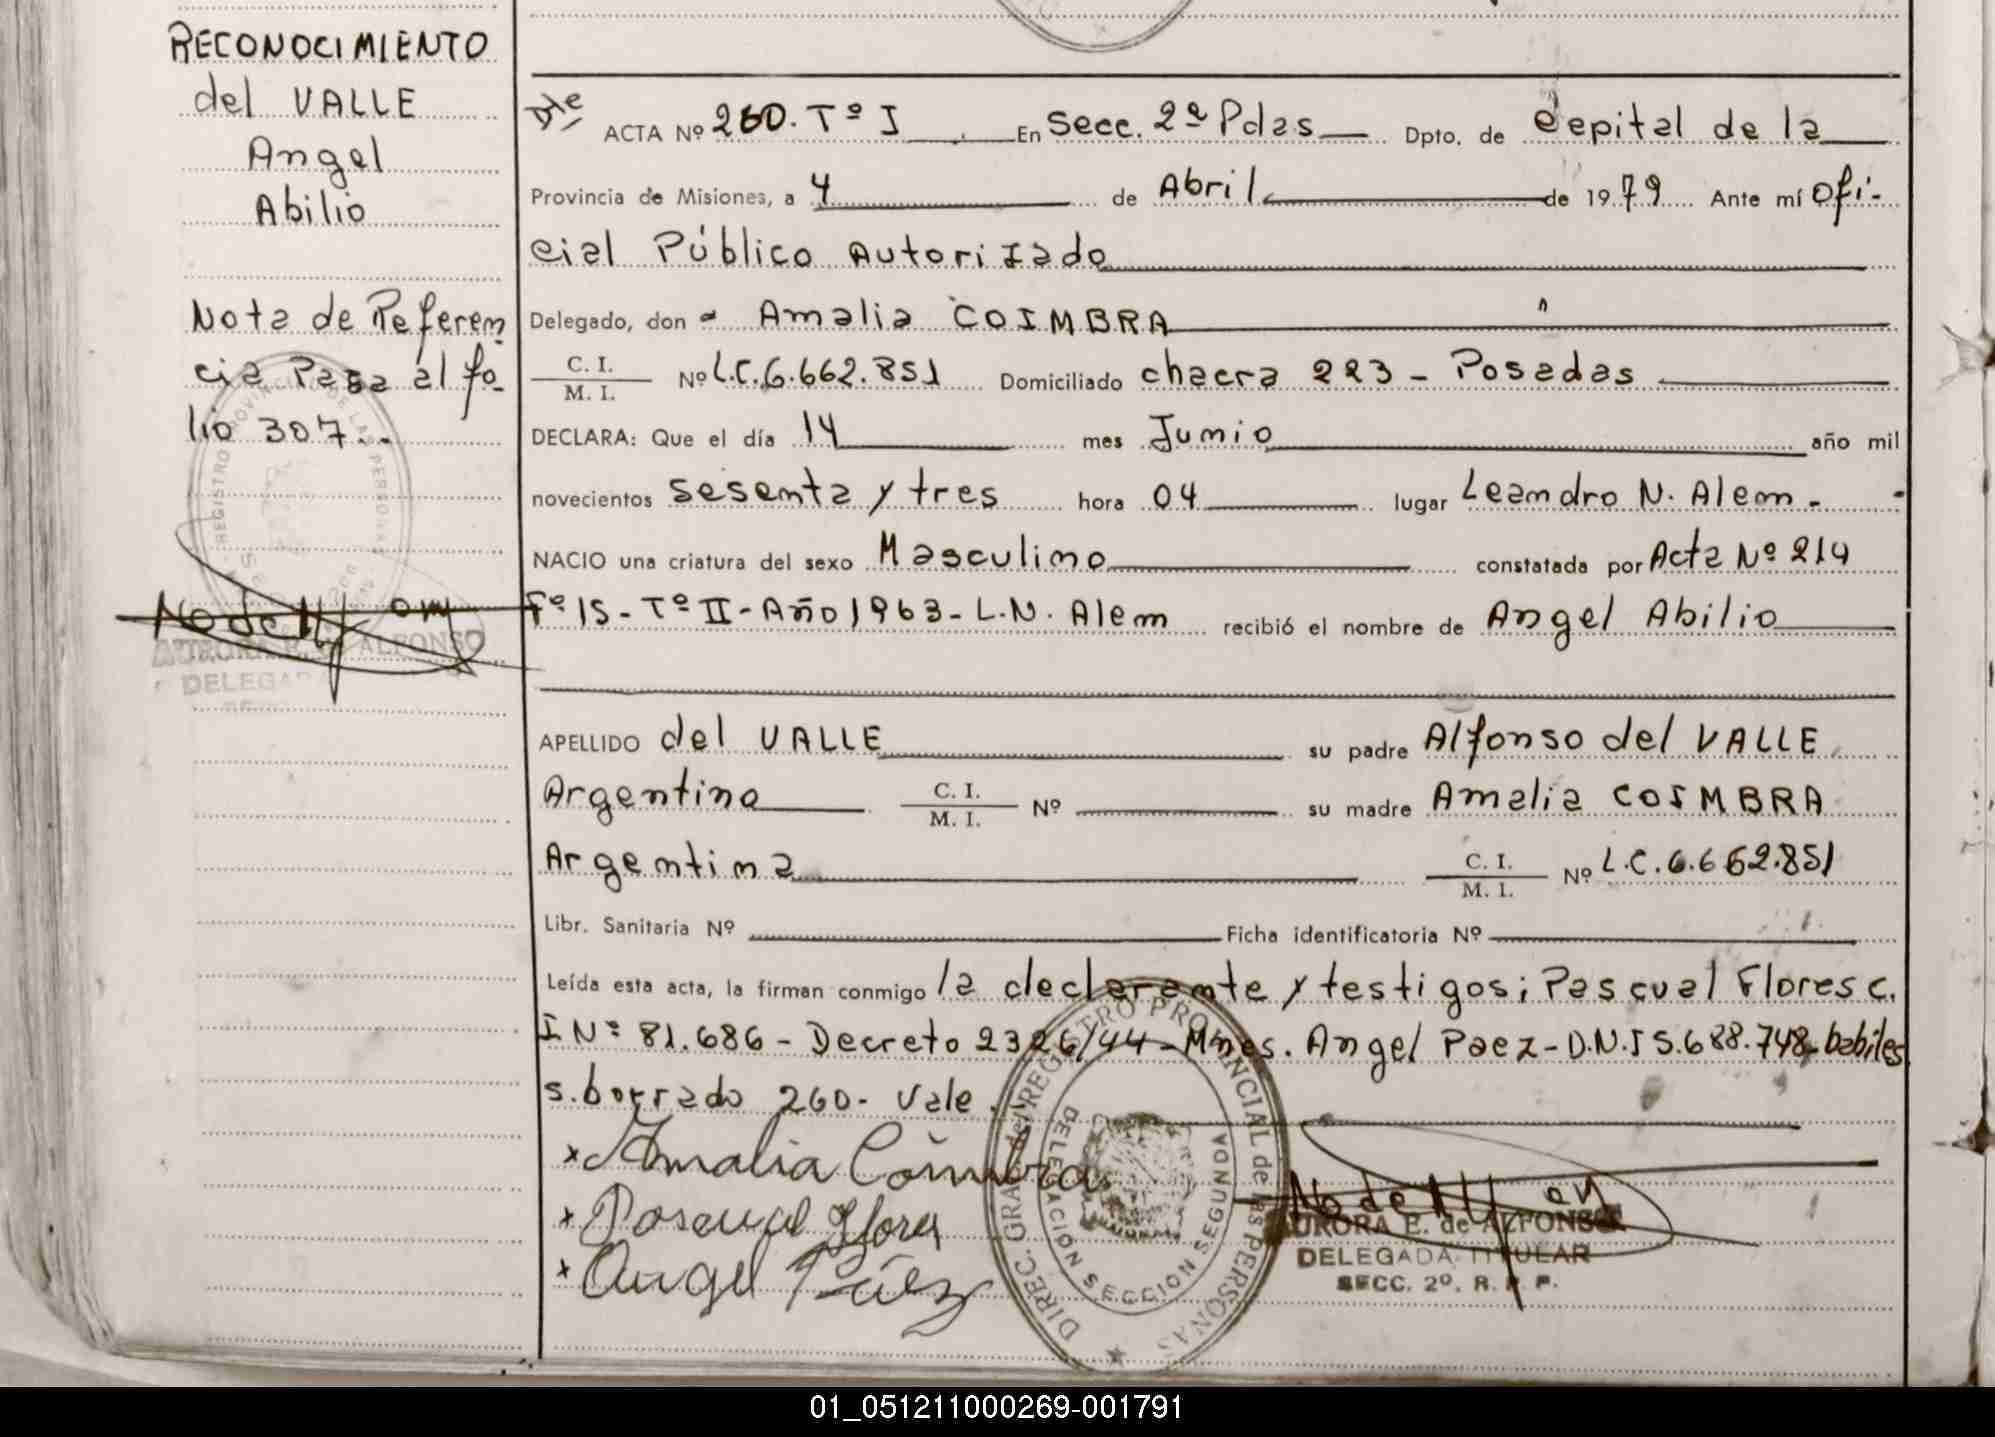 RECONOCIMIENTO
del VALLE
Angel
Abilio
Nota de Referen
cia Pasa al fo-
lio 307..
AURORA E. de ALFONSO
DELEGADA
ACTA Nº 260. Tº I En Secc. 2ª Pdas Dpto. de Capital de la
Provincia de Misiones, a 4 de Abril de 1979 Ante mí Ofi-
cial Público Autorizado
Delegado, don a Amalia COIMBRA
C. I.
M. I.
Nº L.C.6.662.851 Domiciliado chacra 223 - Posadas
DECLARA: Que el día 14 mes Junio año mil
novecientos sesenta y tres hora 04 lugar Leandro N. Alem -
NACIO una criatura del sexo Masculino constatada por Acta Nº 214
Fº 15 - Tº II - Año 1963 - L.N. Alem recibió el nombre de Angel Abilio
APELLIDO del VALLE su padre Alfonso del VALLE
Argentino C. I.
M. I.
Nº su madre Amalia COIMBRA
Argentina C. I.
M. I.
Nº L.C.6.662.851
Libr. Sanitaria Nº Ficha identificatoria Nº
Leída esta acta, la firman conmigo la declarante y testigos; Pascual Flores C.
I Nº 81.686 - Decreto 2326/44 - Mnes. Angel Paez - D.N.I 5.688.748 - babiles
s. borrado 260 - Vale.
x Amalia Coimbra
x Pascual Flores
x Angel Páez
DIREC. GRAL. del REGISTRO PROVINCIAL de las PERSONAS
DELEGACION SECCION SEGUNDA
AURORA E. de ALFONSO
DELEGADA TITULAR
SECC. 2º. R. P. P.
01_051211000269-001791